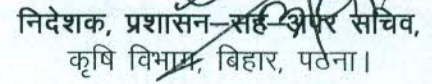 निदेशक, प्रशासन–सह–अपर सचिव,
कृषि विभाग, बिहार, पटना।